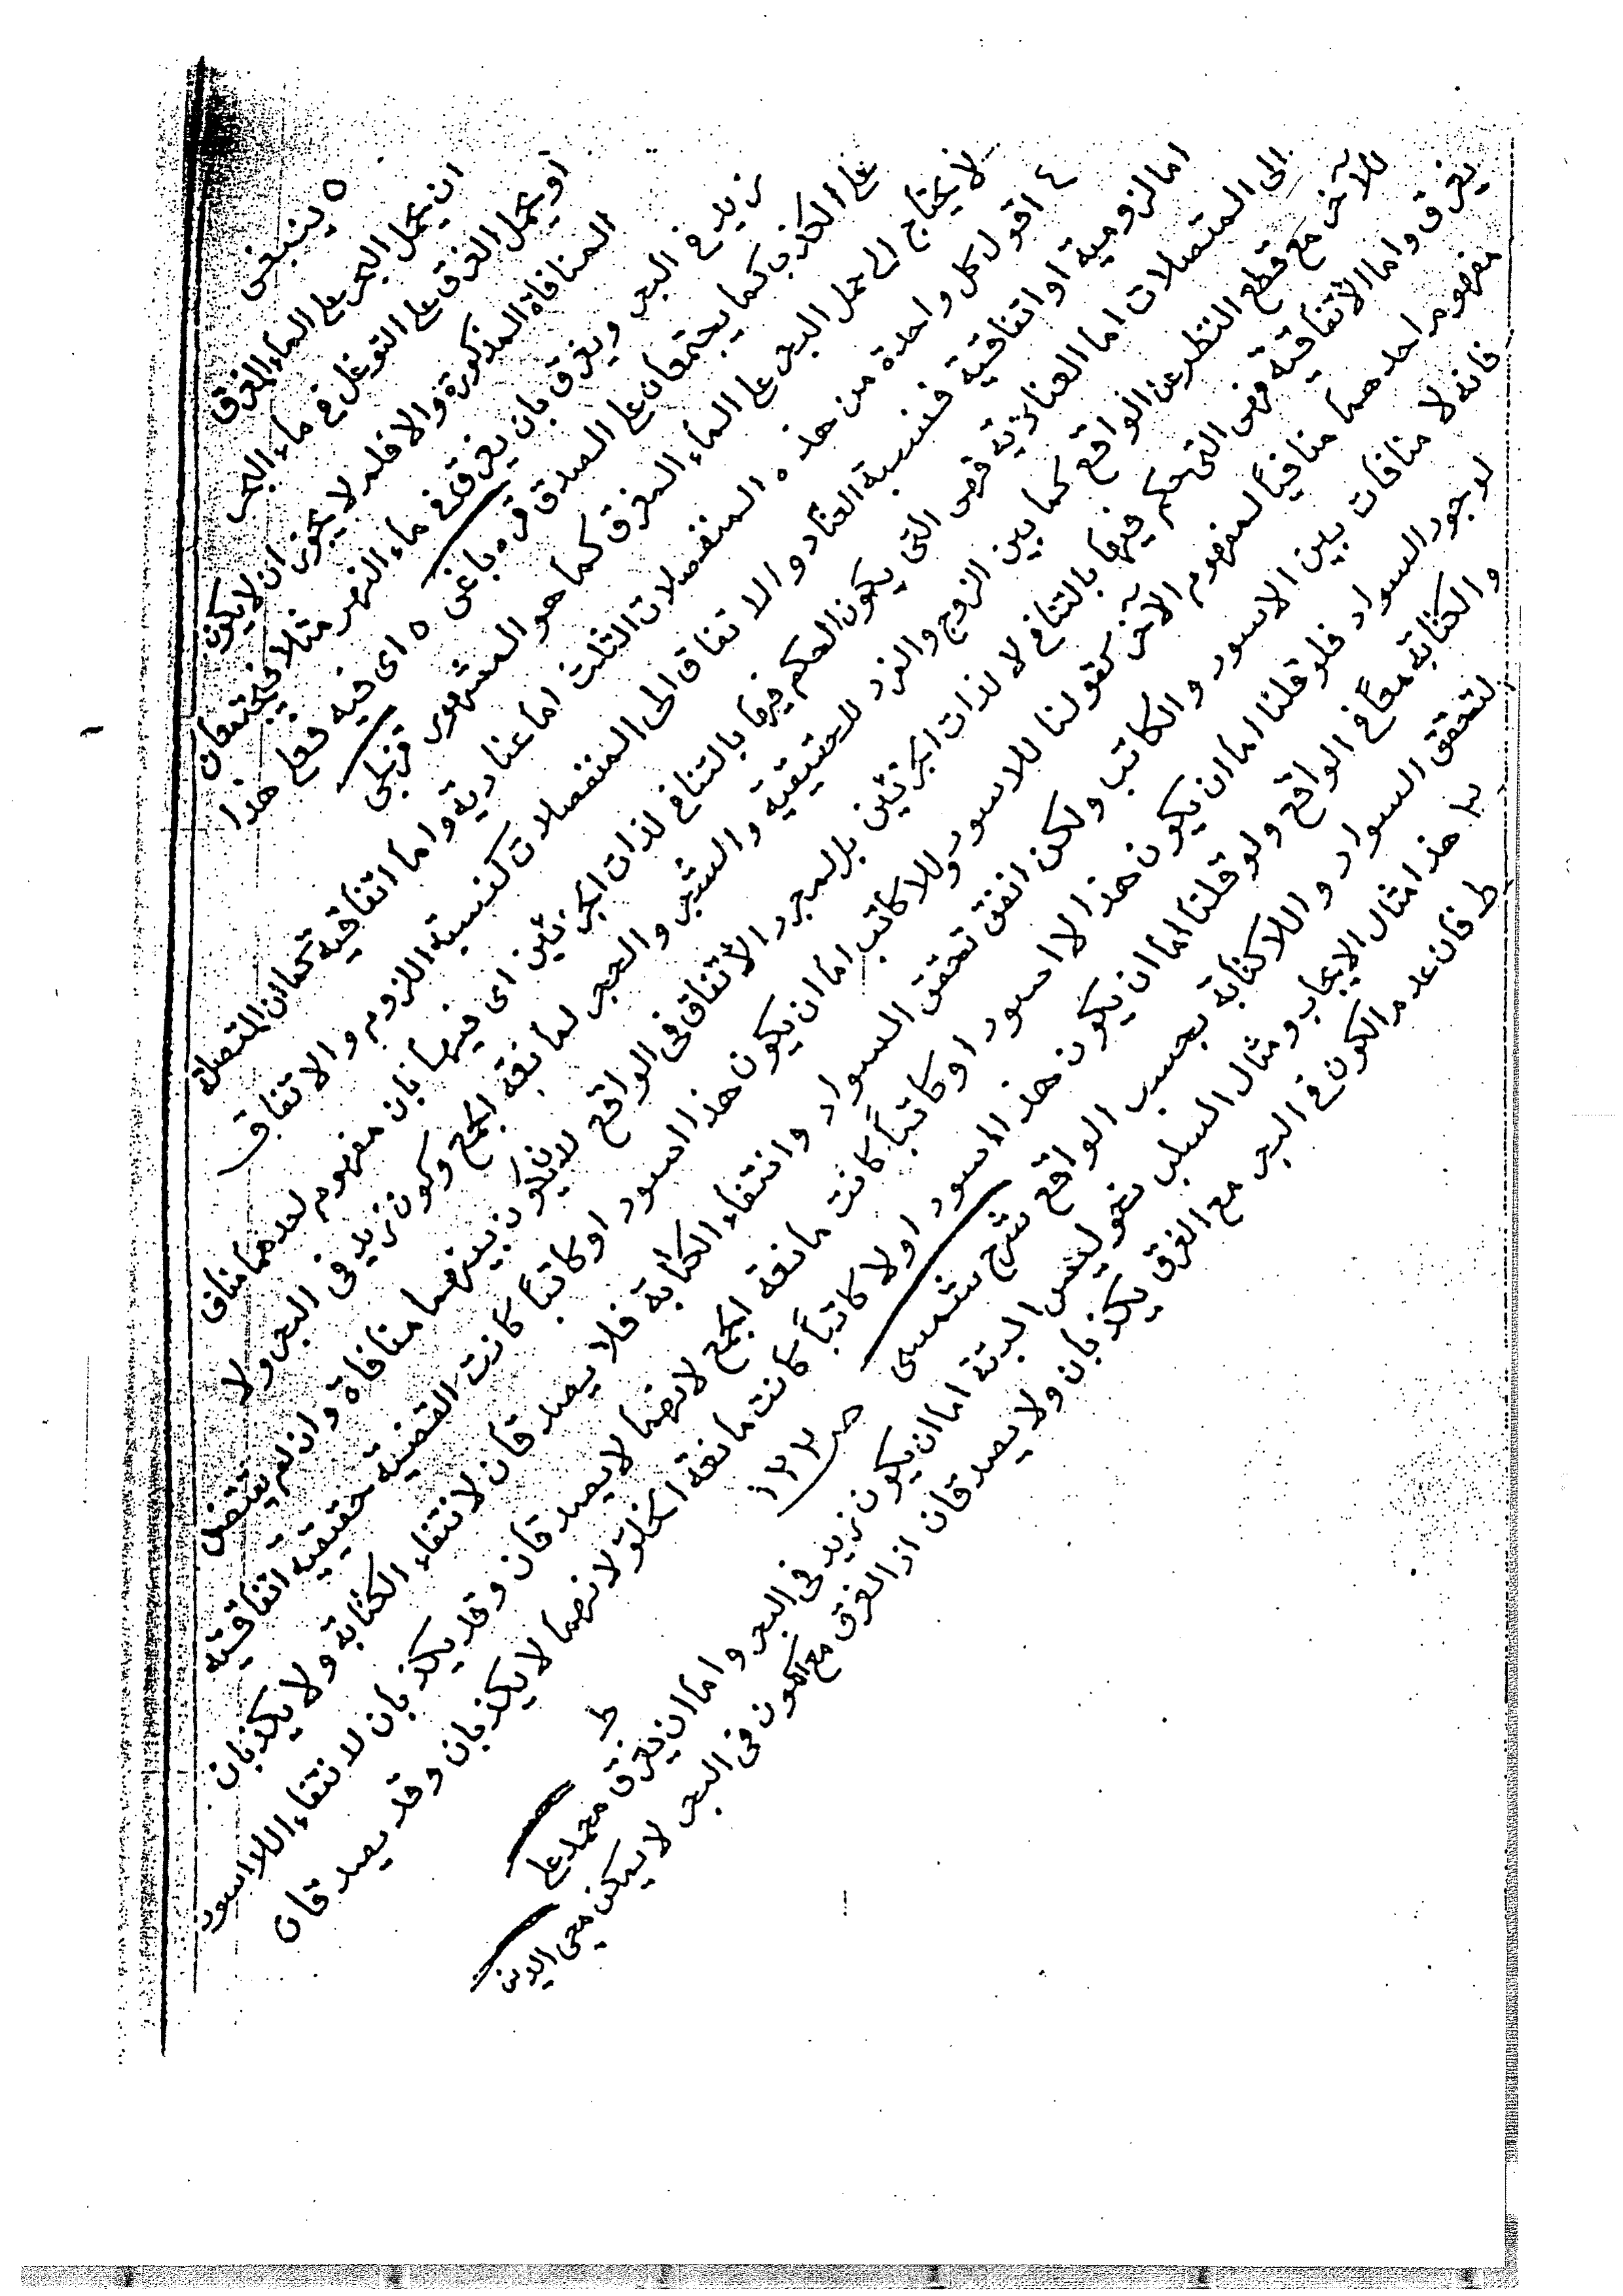 ٥ ينبغى
ان يحمل البحر على الماء المغرق
او يحمل الغرق على التوغل فى ماء البحر
المنافاة المذكورة والا فلم لا يجوز ان لا يكون
زيد فى البحر ويغرق بان يغرق فى ماء النهر مثلا فيجتمعان
على الكذب كما يجتمعان على الصدق قره باغى ٥ اى فيه فعلى هذا
لا يحتاج الى حمل البحر على الماء المغرق كما هو المشهور قزلجى
٤ اقول كل واحدة من هذه المنفصلات الثلث اما عنادية واما اتفاقية كما ان المتصلة
اما لزومية او اتفاقية فنسبة العناد والاتفاق الى المنفصلات كنسبة اللزوم والاتفاق
الى المتصلات اما العنادية فهى التى يكون الحكم فيها بالتنافى لذات الجزئين اى فيها بان مفهوم احدهما مناف
للآخر مع قطع النظر عن الواقع كما بين الزوج والفرد للحقيقية والشجر والحجر لمانعة الجمع وكون زيد فى البحر ولا
يغرق واما الاتفاقية فهى التى حكم فيها بالتنافى لا لذات الجزئين بل لمجرد الاتفاق فى الواقع لان يكون بينهما منافاة وان لم يقتض
مفهوم احدهما منافياً لمفهوم الآخر كقولنا للاسود واللاكاتب اما ان يكون هذا اسود او كاتباً كانت القضية حقيقية اتفاقية
فانه لا منافات بين الاسود والكاتب ولكن اتفق تحقق السواد وانتفاء الكتابة فلا يصدقان لانتفاء الكتابة ولا يكذبان
لوجود السواد فلو قلنا اما ان يكون هذا لا اسود او كاتباً كانت مانعة الجمع لانهما لا يصدقان وقد يكذبان لانتفاء اللا اسود
والكتابة معاً فى الواقع ولو قلنا اما ان يكون هذا اسود او لا كاتباً كانت مانعة الخلو لانهما لا يكذبان وقد يصدقان
لتحقق السواد واللاكتابة بحسب الواقع شرح شمسى ص ١٢٣
هذا مثال الايجاب ومثال السلب نحو ليس البتة اما ان يكون زيد فى البحر واما ان يغرق محمد على ط
ط فان عدم الكون فى البحر مع الغرق يكذبان ولا يصدقان اذ الغرق مع الكون فى البحر لا يمكن محى الدين